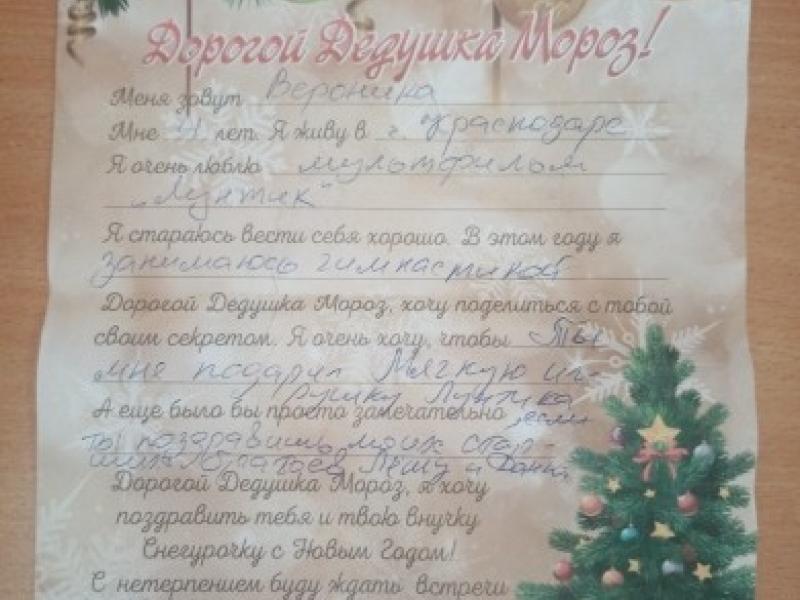 Дорогой Дедушка Мороз!
Меня зовут Вероника
Мне 4 лет. Я живу в г. Краснодаре
Я очень люблю мультфильм
„Лунтик"
Я стараюсь вести себя хорошо. В этом году я
занимаюсь гимнастикой
Дорогой Дедушка Мороз, хочу поделиться с тобой
своим секретом. Я очень хочу, чтобы Ты
мне подарил Мягкую иг-
рушку Лунтика
А еще было бы просто замечательно, если
ты поздравишь моих стар-
ших братьев Лёшу и Даню
Дорогой Дедушка Мороз, я хочу
поздравить тебя и твою внучку
Снегурочку с Новым Годом!
С нетерпением буду ждать встречи